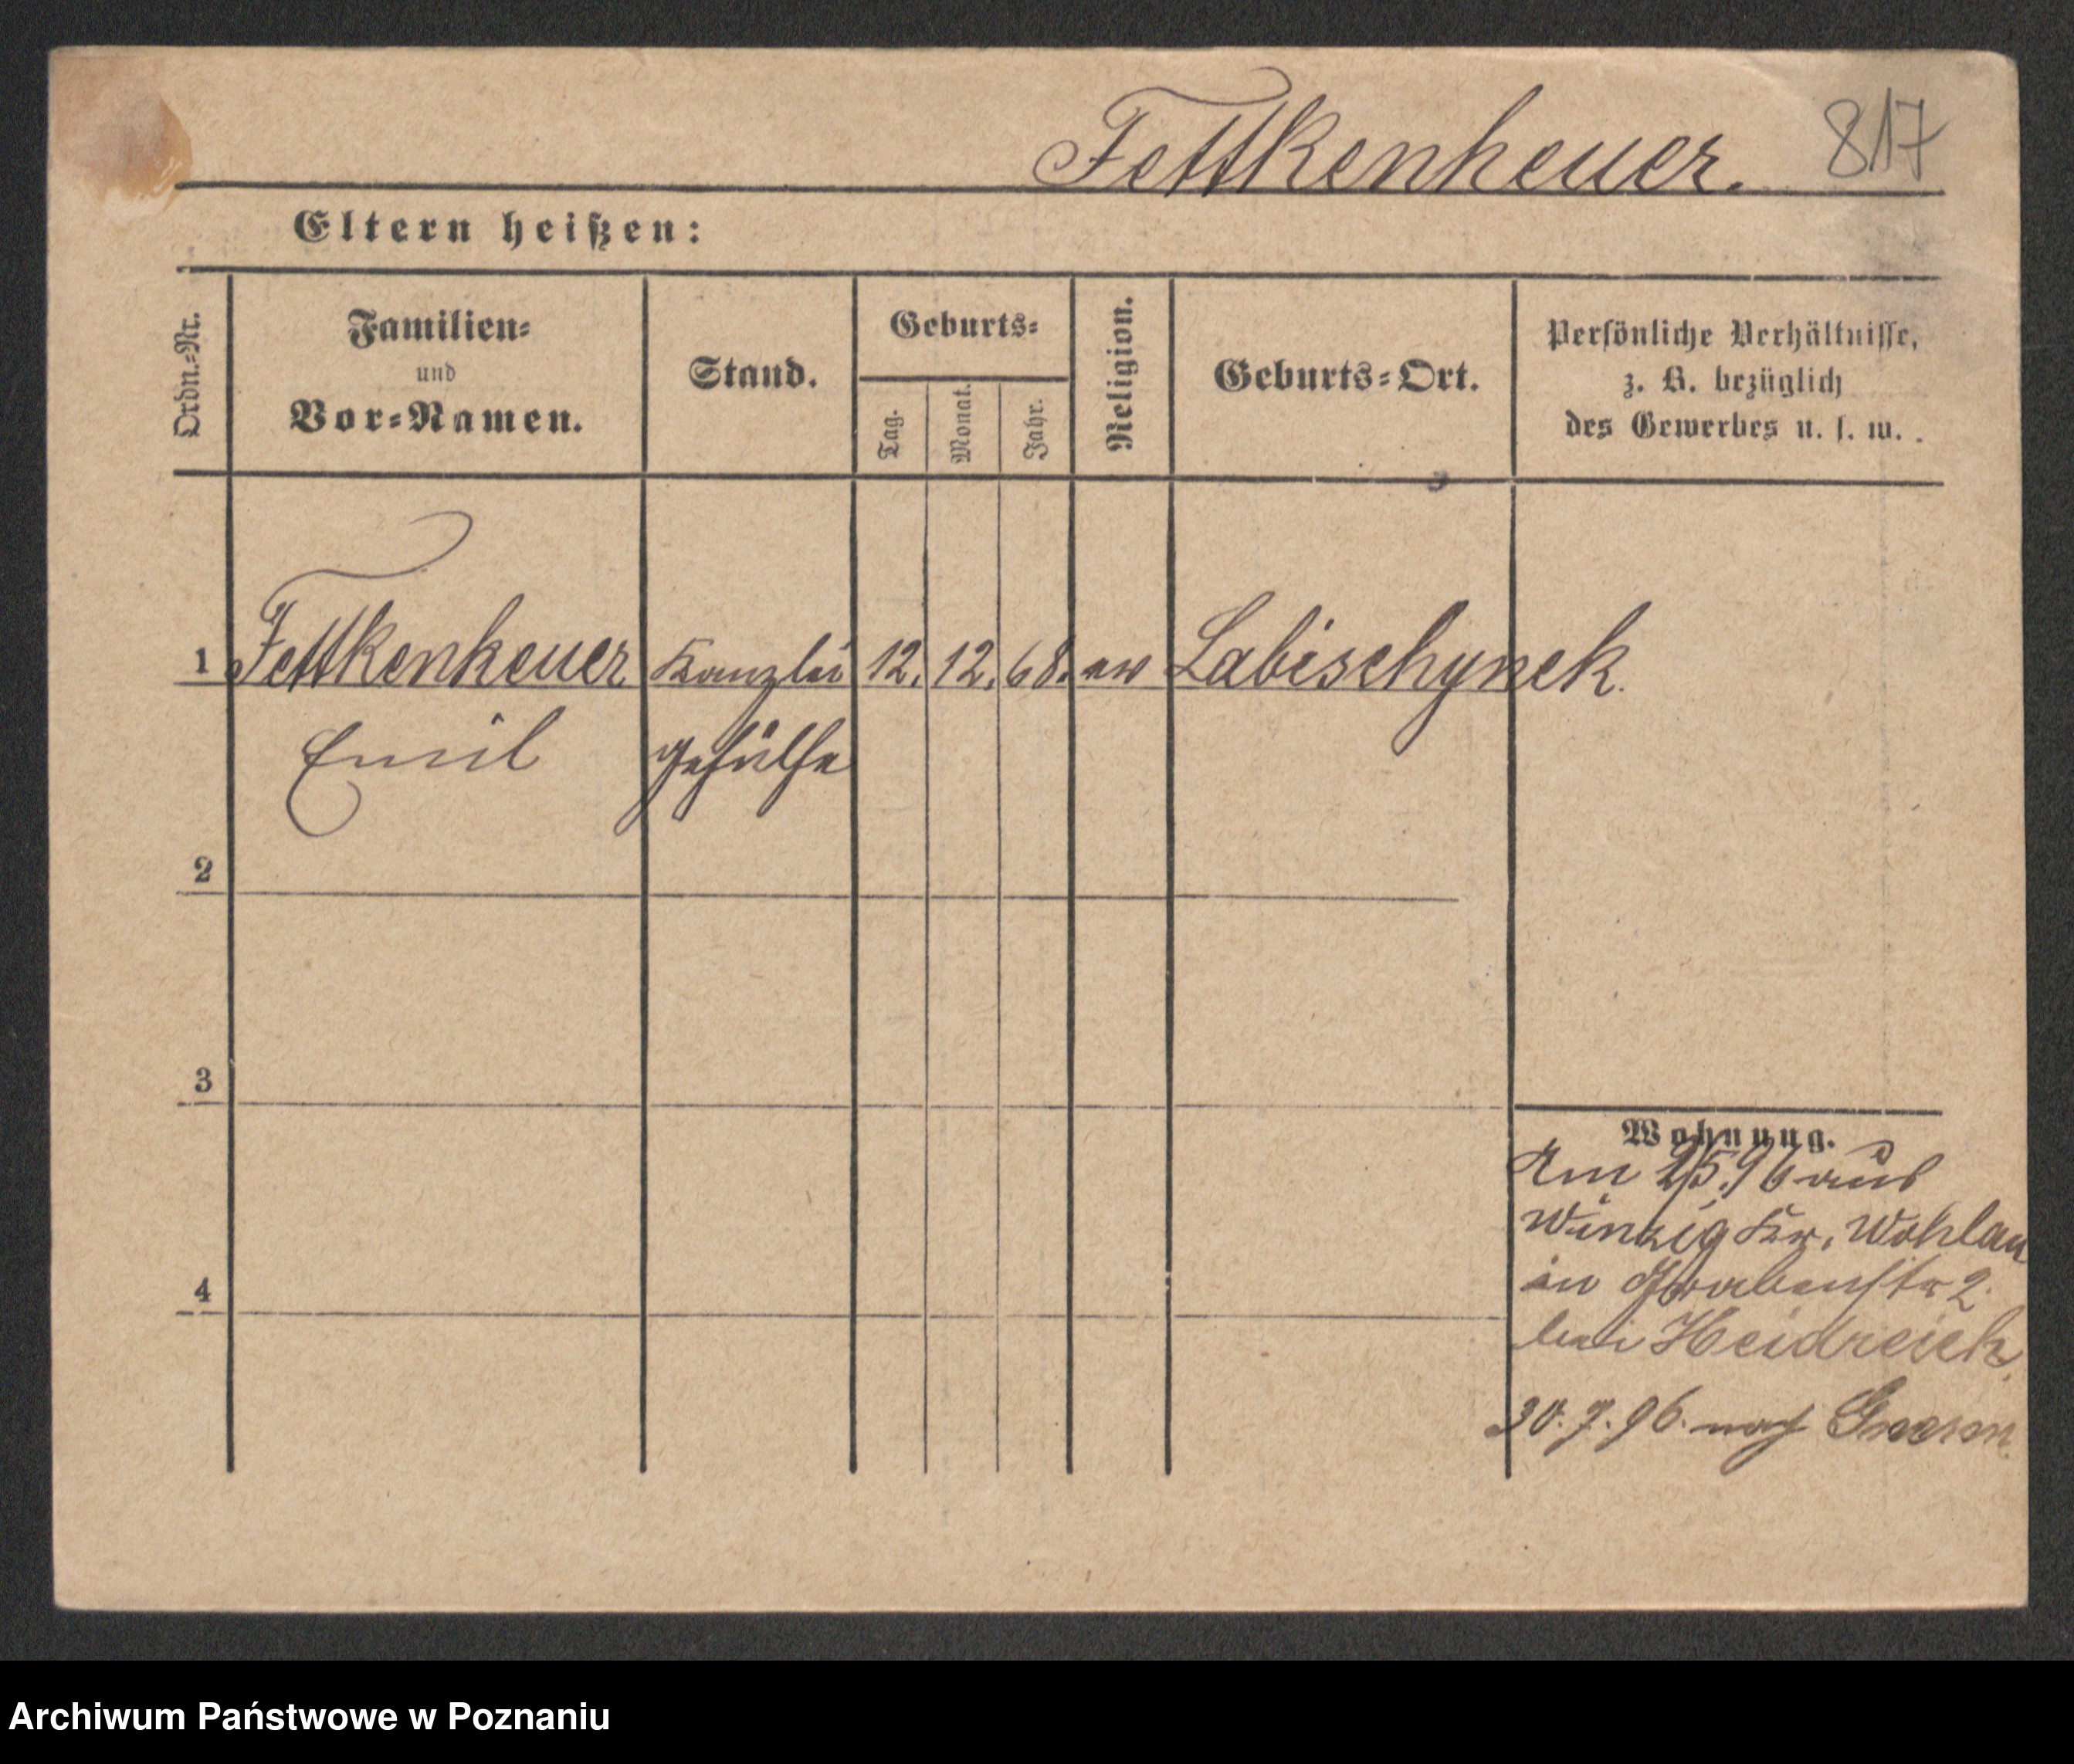 Fettkenheuer. 817
Eltern heißen:
Ordn.=Nr.
Familien=
und
Vor=Namen.
Stand.
Geburts=
Tag.
Monat.
Jahr.
Religion.
Geburts=Ort.
Persönliche Verhältnisse,
z. B. bezüglich
des Gewerbes u. s. w. .
1 Fettkenheuer Kanzlei 12. 12. 68. ev Labischynek.
Emil gehülfe
2
3
4
Wohnung.
Am 2/5.96 aus
Winzig Kr. Wohlau
in Grabenstr 2.
bei Heidreich.
30.7.96. nach Gnesen.
Archiwum Państwowe w Poznaniu